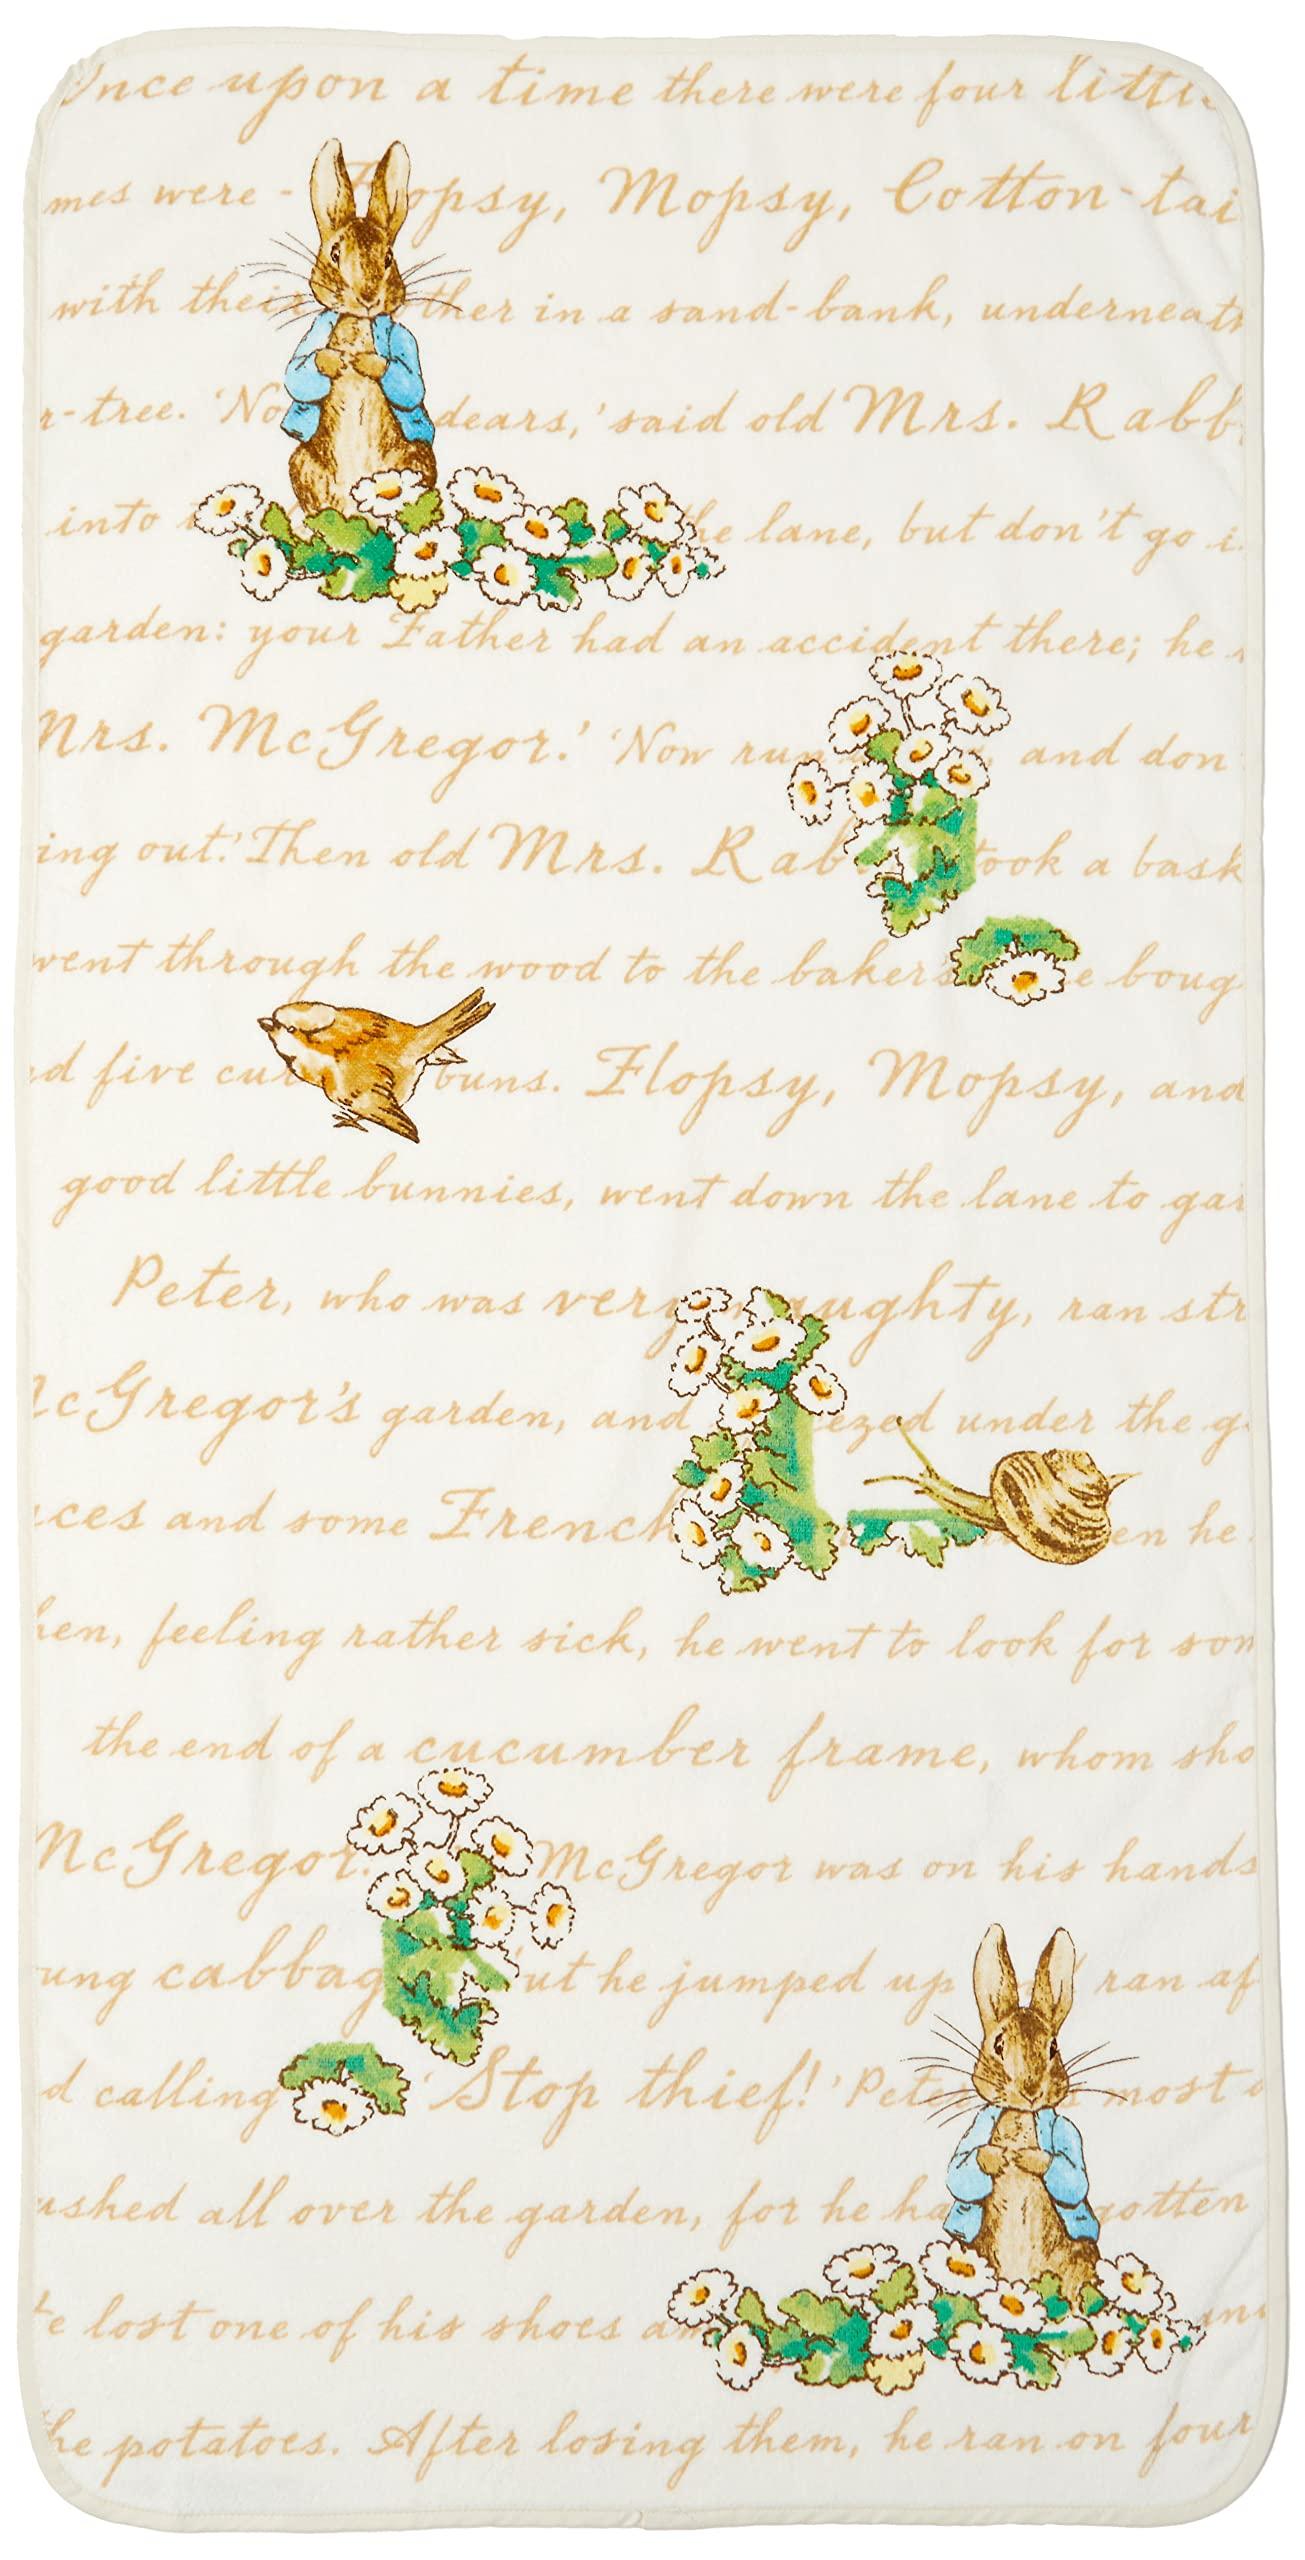 Once upon a time there were four little
mes were - Flopsy, Mopsy, Cotton-tai
with their ther in a sand-bank, underneath
r-tree. 'No dears,' said old Mrs. Rabb
into the lane, but don't go i
garden: your Father had an accident there; he
Mrs. McGregor.' 'Now run and don
ing out.' Then old Mrs. Rab took a bask
went through the wood to the bakers e boug
d five cur buns. Flopsy, Mopsy, and
good little bunnies, went down the lane to gat
Peter, who was very naughty, ran str
McGregor's garden, and ezed under the g
ces and some French en he
hen, feeling rather sick, he went to look for som
the end of a cucumber frame, whom sho
McGregor. McGregor was on his hands
ung cabbag ut he jumped up ran af
d calling 'Stop thief!' Pete most
ushed all over the garden, for he ha gotten
e lost one of his shoes am
he potatoes. After losing them, he ran on four